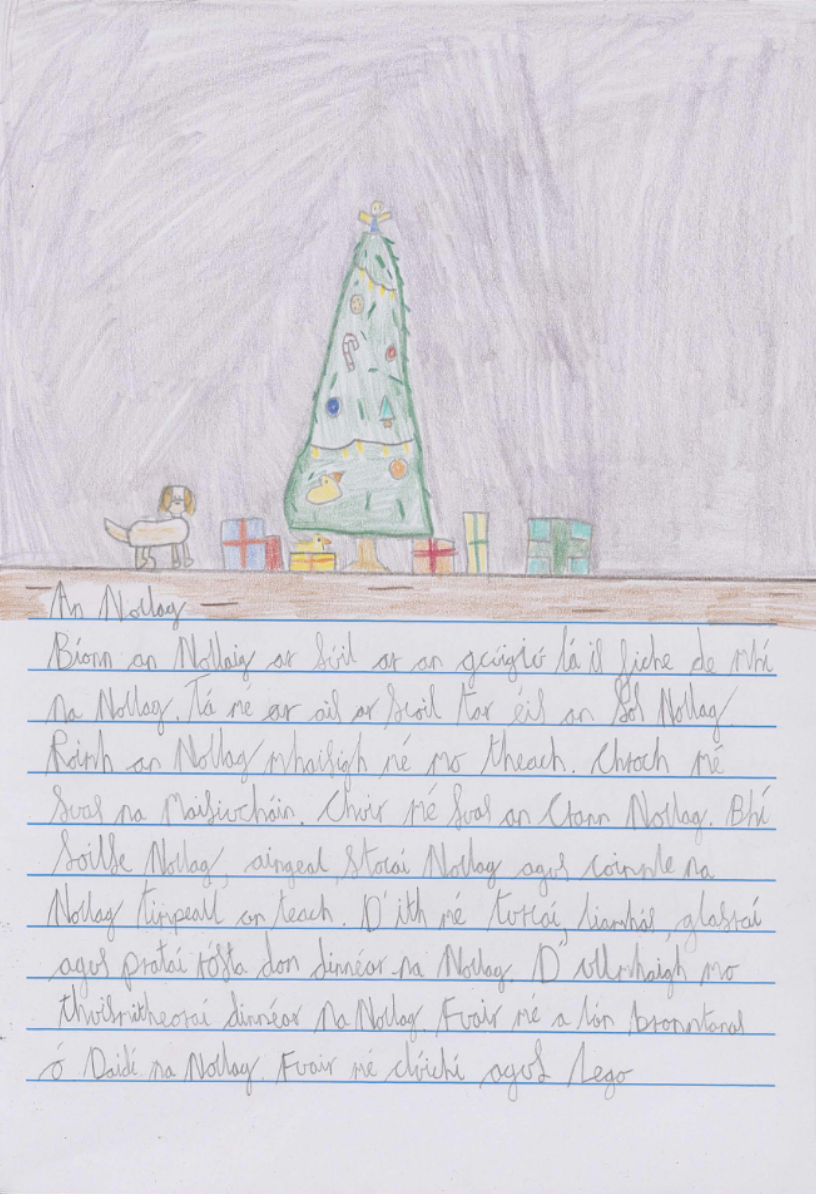 An Nollag
Bíonn an Nollaig ar súil ar an gcúigiú lá is fiche de mhí
na Nollag. Tá mé ar ais ar scoil tar éis an Sos Nollag.
Roimh an Nollag mhaisigh mé mo theach. Chroch mé
suas na Maisiucháin. Chuir mé suas an Crann Nollag. Bhí
soilse Nollag, aingeal, stocaí Nollag agus coinnle na
Nollag timpeall an teach. D'ith mé turcaí, liamhás, glasraí
agus prataí rósta don dinnéar na Nollag. D'ullmhaigh mo
thuismitheoraí dinnéar na Nollag. Fuair mé a lán bronntanas
ó Daidí na Nollag. Fuair mé clúichí agus Lego